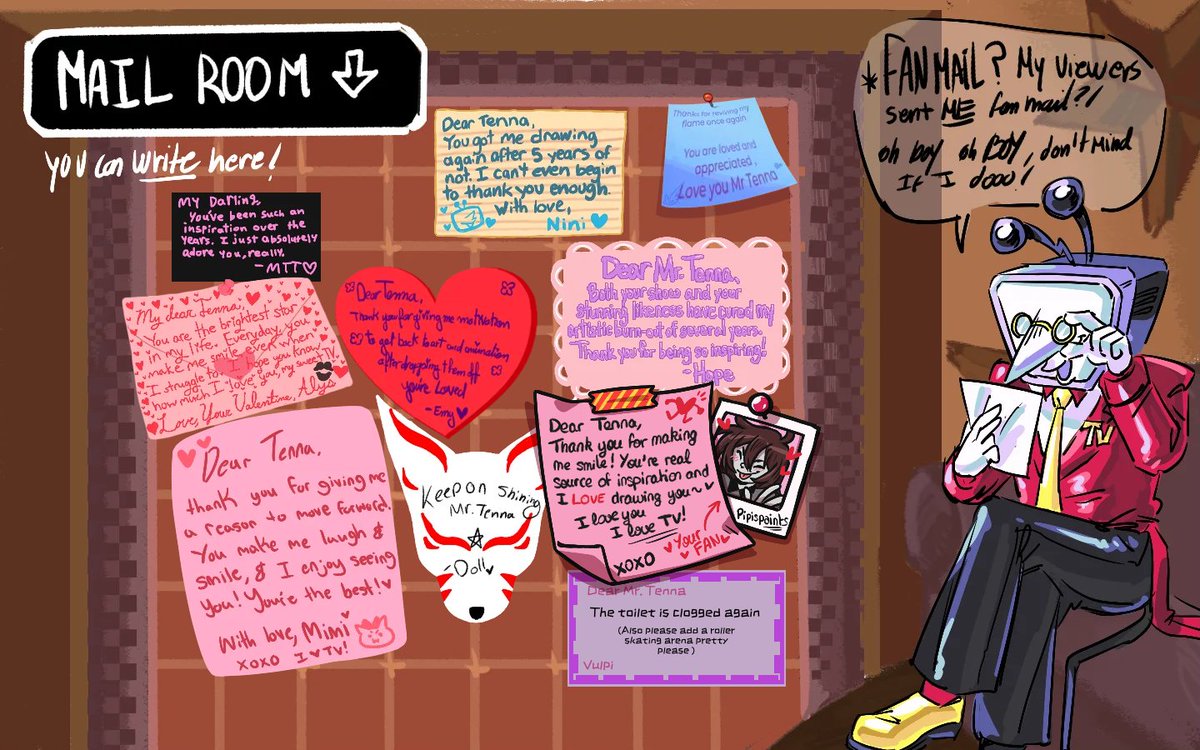 MAIL ROOM
you can write here!
*FANMAIL? My viewers
sent ME fan mail?!
oh boy oh BOY, don't mind
If I dooo!
TV
Dear Tenna,
You got me drawing
again after 5 years of
not. I can't even begin
to thank you enough.
With love,
Nini
Thanks for reviving my
flame once again
You are loved and
appreciated,
Love you Mr Tenna
MY DaRling,
You've been such an
inspiration over the
Years. I just absolutely
adore you, really.
-MTT
My dear Tenna,
You are the brightest star
in my life. Everyday, you
make me smile even when
I struggle to. I hope you know
how much I love you, my sweet TV.
Love, Your Valentine, Alys
Dear Tenna,
Thank you for giving me motivation
to get back to art and animation
after dropping them off
you're Loved
-Emy
Dear Mr. Tenna,
Both your show and your
stunning likeness have cured my
artistic burn-out of several years.
Thank you for being so inspiring!
-Hope
Dear Tenna,
thank you for giving me
a reason to move forward.
You make me laugh &
smile, & I enjoy seeing
you! You're the best!
With love, Mimi
xoxo I ♥ TV!
Keep on Shining
Mr. Tenna
-Doll
Dear Tenna,
Thank you for making
me smile! You're real
source of inspiration and
I LOVE drawing you~
I love you
I love TV!
XOXO
Your
FAN
Pipispaints
Dear Mr. Tenna
The toilet is clogged again
(Also please add a roller
skating arena pretty
please)
Vulpi